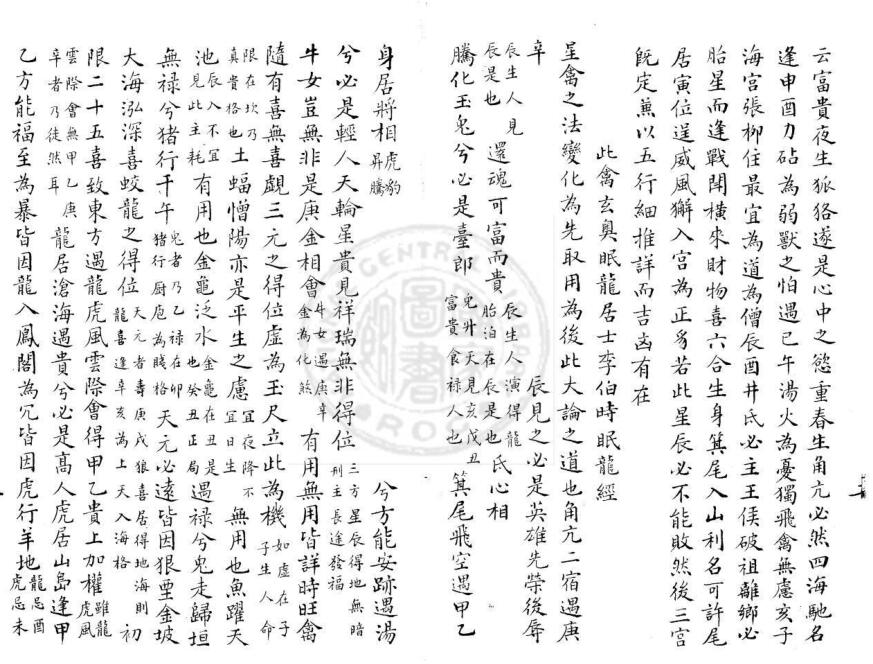 云富貴夜生狐狢遂是心中之慾重春生角亢必然四海馳名
逢申酉刀砧為弱獸之怕遇巳午湯火為憂獨飛禽無慮亥子
海宮張柳任最宜為道為僧辰酉井氐必主王侯破祖離鄉必
胎星而逢戰鬪橫來財物喜六合生身箕尾入山利名可許尾
居寅位逞威風獬入宮為正豸若此星辰必不能敗然後三宮
既定兼以五行細推詳而吉凶有在
此禽玄奧眠龍居士李伯時眠龍經
星禽之法變化為先取用為後此大論之道也角亢二宿遇庚
辛辰生人見辰是也還魂可富而貴辰生人演得龍胎泊在辰是也辰見之必是英雄先榮後辱氐心相
騰化玉兔兮必是臺郎兔升天見亥戊丑富貴食祿人也箕尾飛空遇甲乙
身居將相虎豹昇騰兮方能安跡遇湯
兮必是輕人天輪星貴見祥瑞無非得位三方星辰得地無暗刑主長途發福
牛女豈無非是庚金相會牛女遇庚辛金為化煞有用無用皆詳時旺禽
隨有喜無喜覷三元之得位虛為玉尺立此為機如虛在子子生人命
限在坎乃真貴格也土蝠憎陽亦是平生之慮宜夜降不宜日生無用也魚躍天
池辰入不宜見此主耗有用也金龜泛水金龜在丑是也癸丑正局遇祿兮兔走歸垣
無祿兮猪行千午兔者乃乙祿在卯猪行厨庖為賤格天元必遠皆因狼垔金坡
大海泓深喜蛟龍之得位天元者壽庚戌狼喜居得地海則龍喜逢辛亥為上天入海格初
限二十五喜致東方遇龍虎風雲際會得甲乙貴上加權雖龍虎風
雲際會無甲乙庚辛者乃徒然耳龍居滄海遇貴兮必是高人虎居山島逢甲
乙方能福至為暴皆因龍入鳳閣為冗皆因虎行羊地龍忌酉虎忌未